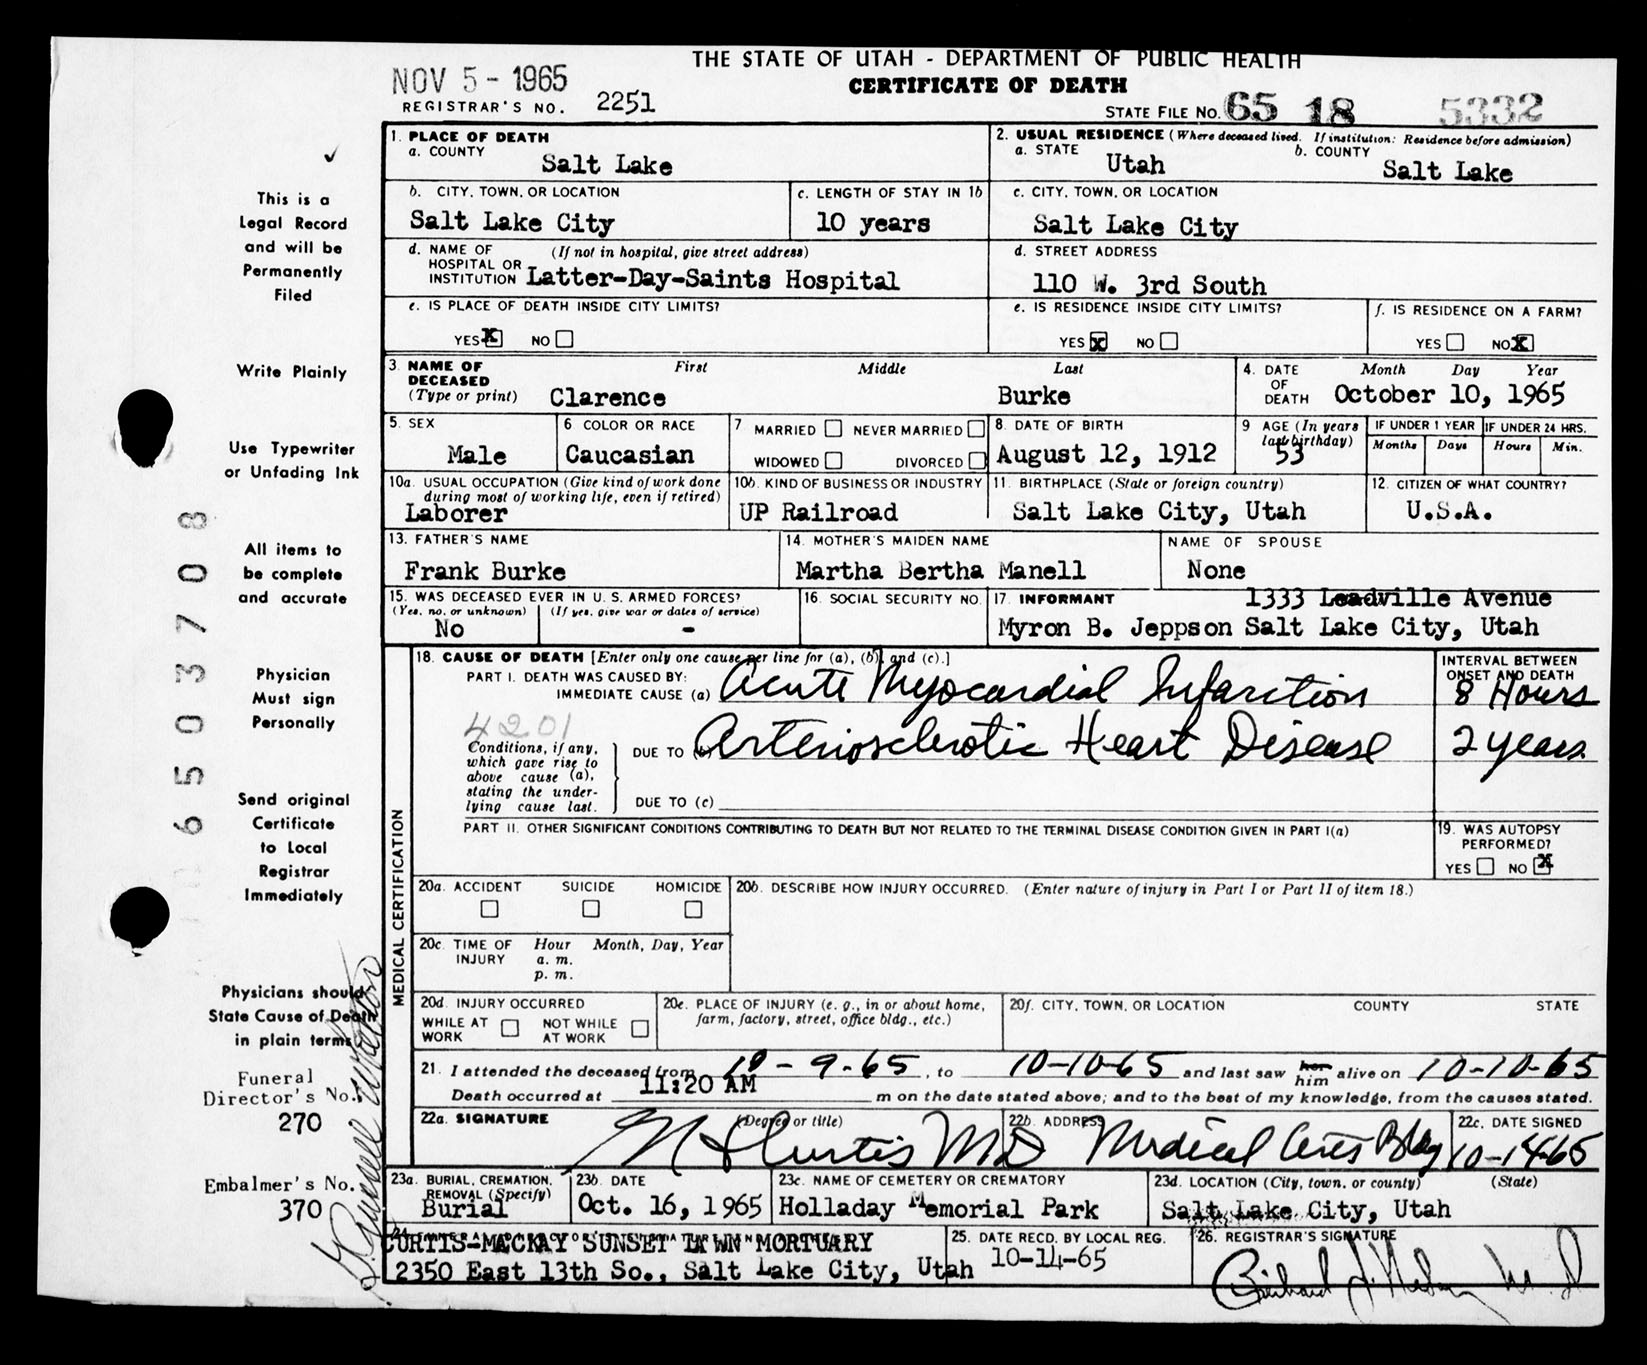 THE STATE OF UTAH - DEPARTMENT OF PUBLIC HEALTH
NOV 5 - 1965
CERTIFICATE OF DEATH
REGISTRAR'S NO. 2251
STATE FILE NO. 65 18 5332
This is a
Legal Record
and will be
Permanently
Filed
Write Plainly
Use Typewriter
or Unfading Ink
All items to
be complete
and accurate
Physician
Must sign
Personally
Send original
Certificate
to Local
Registrar
Immediately
Physicians should
State Cause of Death
in plain terms
Funeral
Director's No.
270
Embalmer's No.
370
6503708
1. PLACE OF DEATH
a. COUNTY
Salt Lake
2. USUAL RESIDENCE (Where deceased lived. If institution: Residence before admission)
a. STATE
Utah
b. COUNTY
Salt Lake
b. CITY, TOWN, OR LOCATION
Salt Lake City
c. LENGTH OF STAY IN 1b
10 years
c. CITY, TOWN, OR LOCATION
Salt Lake City
d. NAME OF (If not in hospital, give street address)
HOSPITAL OR
INSTITUTION Latter-Day-Saints Hospital
d. STREET ADDRESS
110 W. 3rd South
e. IS PLACE OF DEATH INSIDE CITY LIMITS?
YES X NO
e. IS RESIDENCE INSIDE CITY LIMITS?
YES X NO
f. IS RESIDENCE ON A FARM?
YES NO X
3. NAME OF DECEASED
(Type or print)
First Middle Last
Clarence Burke
4. DATE OF DEATH
Month Day Year
October 10, 1965
5. SEX
Male
6 COLOR OR RACE
Caucasian
7 MARRIED NEVER MARRIED
WIDOWED DIVORCED
8. DATE OF BIRTH
August 12, 1912
9 AGE (In years last birthday)
53
IF UNDER 1 YEAR
Months Days
IF UNDER 24 HRS.
Hours Min.
10a. USUAL OCCUPATION (Give kind of work done
during most of working life, even if retired)
Laborer
10b. KIND OF BUSINESS OR INDUSTRY
UP Railroad
11. BIRTHPLACE (State or foreign country)
Salt Lake City, Utah
12. CITIZEN OF WHAT COUNTRY?
U.S.A.
13. FATHER'S NAME
Frank Burke
14. MOTHER'S MAIDEN NAME
Martha Bertha Manell
NAME OF SPOUSE
None
15. WAS DECEASED EVER IN U.S. ARMED FORCES?
(Yes, no, or unknown) (If yes, give war or dates of service)
No -
16. SOCIAL SECURITY NO.
17. INFORMANT 1333 Leadville Avenue
Myron B. Jeppson Salt Lake City, Utah
MEDICAL CERTIFICATION
18. CAUSE OF DEATH [Enter only one cause per line for (a), (b), and (c).]
PART I. DEATH WAS CAUSED BY:
IMMEDIATE CAUSE (a) Acute Myocardial Infarction
INTERVAL BETWEEN
ONSET AND DEATH
8 Hours
4201
Conditions, if any,
which gave rise to
above cause (a),
stating the under-
lying cause last.
DUE TO (b) Arteriosclerotic Heart Disease
2 years
DUE TO (c)
PART II. OTHER SIGNIFICANT CONDITIONS CONTRIBUTING TO DEATH BUT NOT RELATED TO THE TERMINAL DISEASE CONDITION GIVEN IN PART I(a)
19. WAS AUTOPSY
PERFORMED?
YES NO X
20a. ACCIDENT SUICIDE HOMICIDE
20b. DESCRIBE HOW INJURY OCCURRED. (Enter nature of injury in Part I or Part II of item 18.)
20c. TIME OF INJURY
Hour Month, Day, Year
a. m.
p. m.
20d. INJURY OCCURRED
WHILE AT WORK NOT WHILE AT WORK
20e. PLACE OF INJURY (e. g., in or about home,
farm, factory, street, office bldg., etc.)
20f. CITY, TOWN, OR LOCATION COUNTY STATE
21. I attended the deceased from 10-9-65, to 10-10-65 and last saw her him alive on 10-10-65
Death occurred at 11:20 AM m on the date stated above; and to the best of my knowledge, from the causes stated.
22a. SIGNATURE (Degree or title)
Curtis MD
22b. ADDRESS
Medical Arts Bldg
22c. DATE SIGNED
10-14-65
23a. BURIAL, CREMATION,
REMOVAL (Specify)
Burial
23b. DATE
Oct. 16, 1965
23c. NAME OF CEMETERY OR CREMATORY
Holladay Memorial Park
23d. LOCATION (City, town, or county) (State)
Salt Lake City, Utah
CURTIS-MACKAY SUNSET LAWN MORTUARY
2350 East 13th So., Salt Lake City, Utah
25. DATE RECD. BY LOCAL REG.
10-14-65
26. REGISTRAR'S SIGNATURE